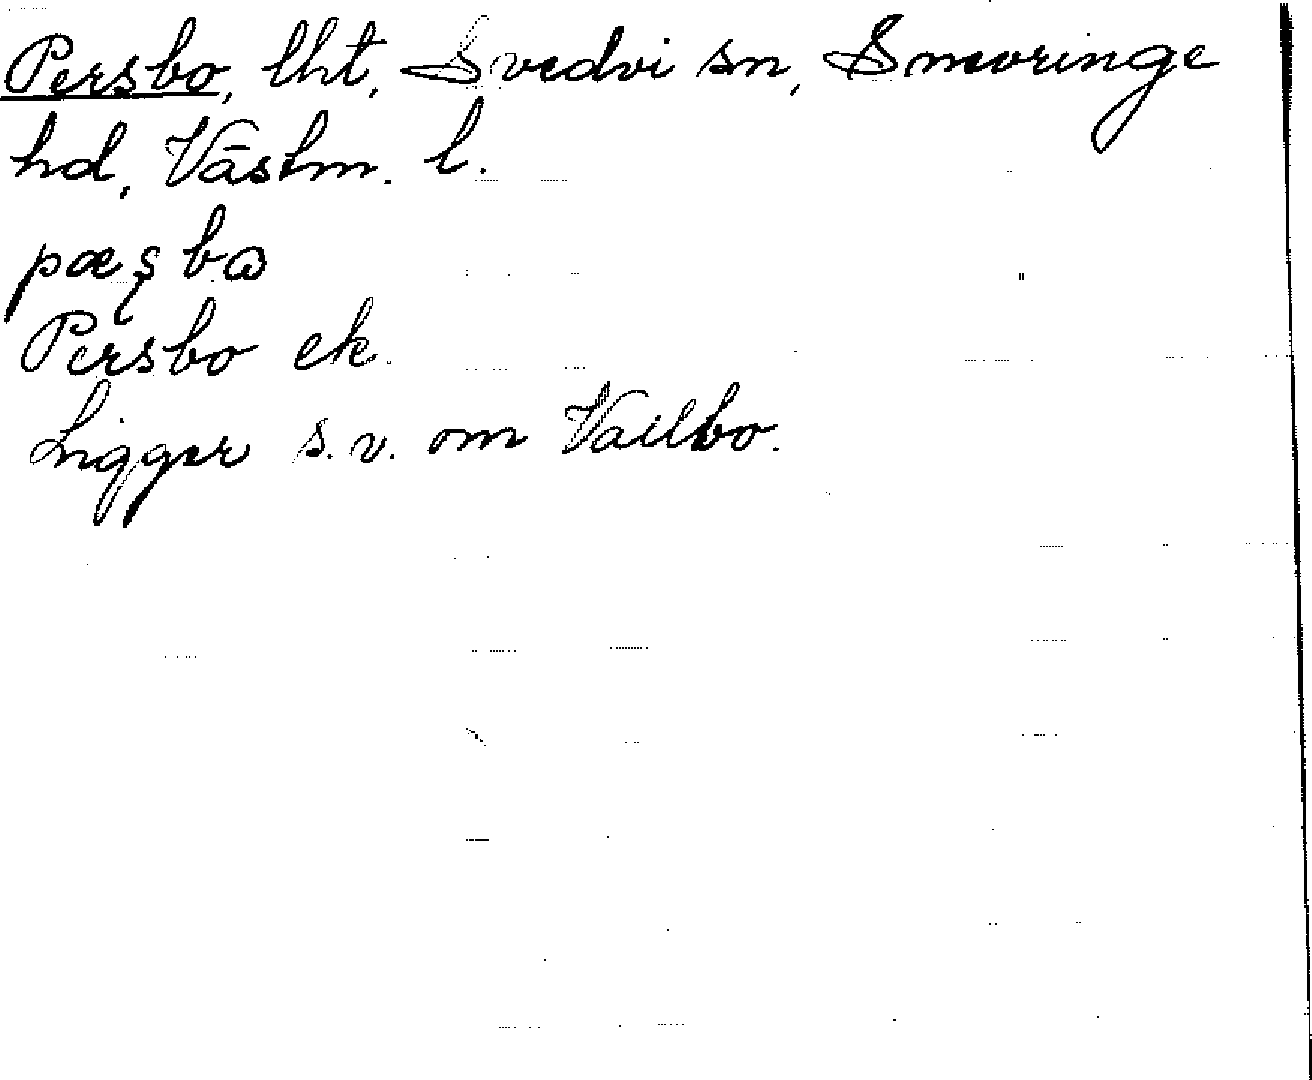 Persbo, lht, Svedvi sn, Snevringe
hd, Västm. l.
pæʂbɷ
Persbo ek.
Ligger s.v. om Vallbo.